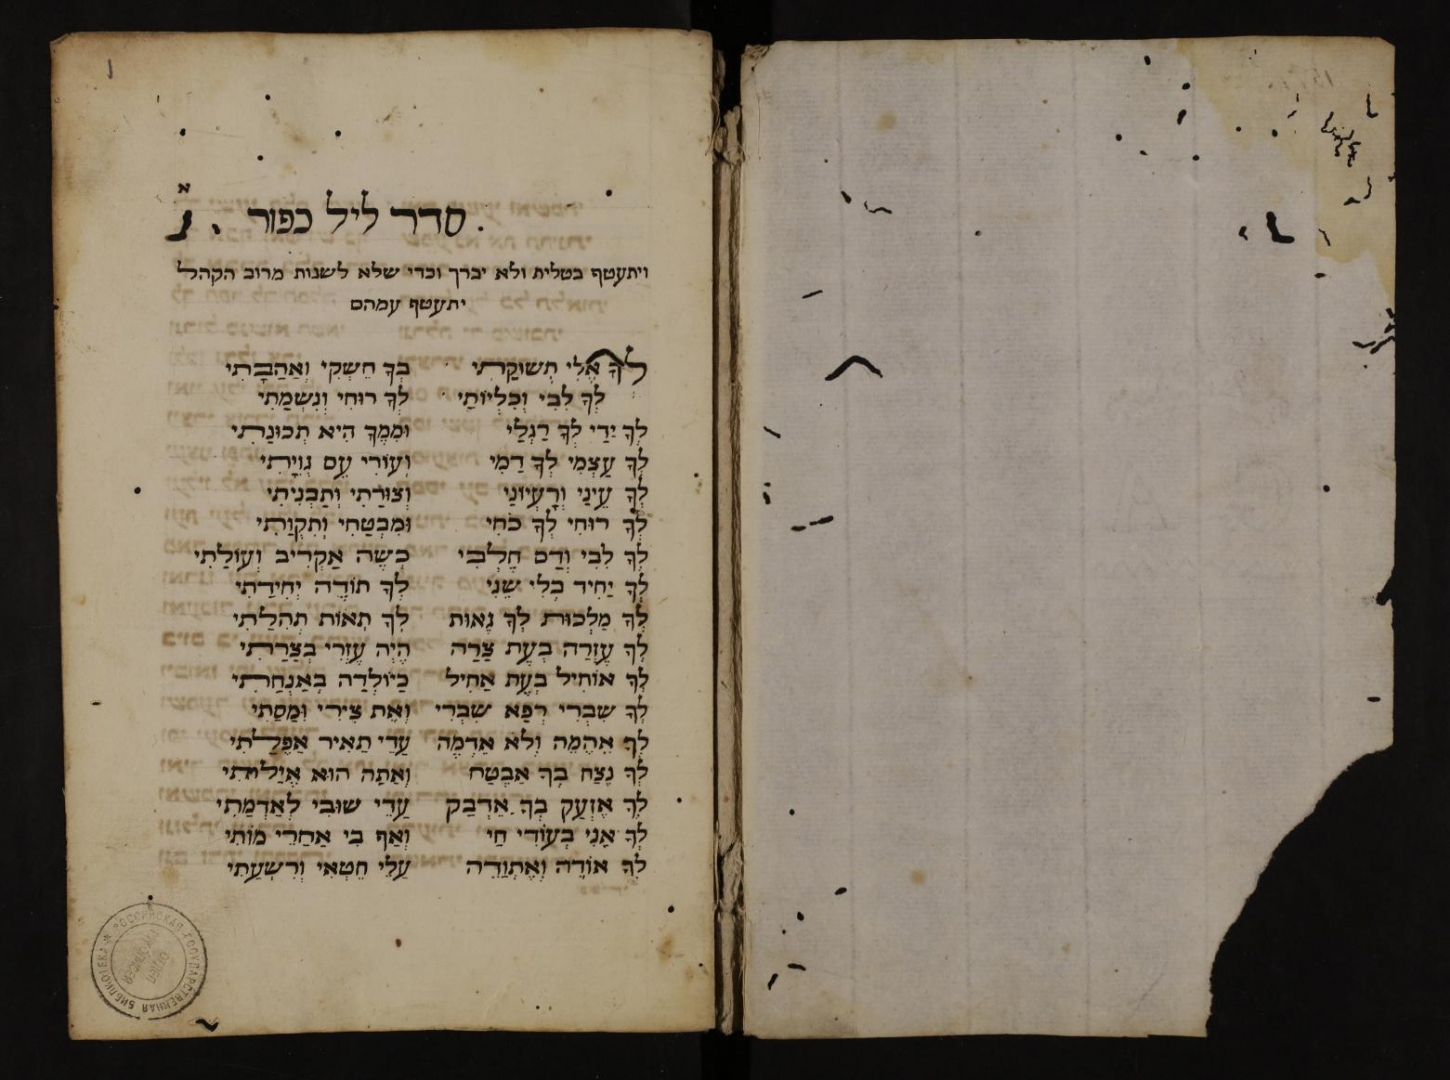 א
סדר ליל כפור
ויתעטף בטלית ולא יברך וכדי שלא לשנות מרוב הקהל
יתעטף עמהם
לְךָ אֵלִי תְּשׁוּקָתִי בְּךָ חֶשְׁקִי וְאַהֲבָתִי
לְךָ לִבִּי וְכִלְיוֹתַי לְךָ רוּחִי וְנִשְׁמָתִי
לְךָ יָדַי לְךָ רַגְלַי וּמִמְּךָ הִיא תְּכוּנָתִי
לְךָ עַצְמִי לְךָ דָמִי וְעוֹרִי עִם גְּוִיָּתִי
לְךָ עֵינַי וְרַעְיוֹנַי וְצוּרָתִי וְתַבְנִיתִי
לְךָ רוּחִי לְךָ כֹחִי וּמִבְטַחִי וְתִקְוָתִי
לְךָ לִבִּי וְדַם חֶלְבִּי כְּשֶׂה אַקְרִיב וְעוֹלָתִי
לְךָ יָחִיד בְּלִי שֵׁנִי לְךָ תוֹדֶה יְחִידָתִי
לְךָ מַלְכוּת לְךָ גֵאוּת לְךָ תֵאוֹת תְּהִלָּתִי
לְךָ עֶזְרָה בְּעֵת צָרָה הֱיֵה עֶזְרִי בְּצָרָתִי
לְךָ אוֹחִיל בְּעֵת אָחִיל כַּיּוֹלֵדָה בְּאַנְחָתִי
לְךָ שִׂבְרִי רְפָא שִׁבְרִי וְאֶת צִירִי וּמַכָּתִי
לְךָ אֶהֱמֶה וְלֹא אֶדְמֶה עֲדֵי תָאִיר אֲפֵלָתִי
לְךָ נֶצַח בְּךָ אֶבְטַח וְאַתָּה הוּא אֱיָלוּתִי
לְךָ אֶזְעַק בְּךָ אֶדְבַּק עֲדֵי שׁוּבִי לְאַדְמָתִי
לְךָ אֲנִי בְּעוֹדִי חַי וְאַף כִּי אַחֲרֵי מוֹתִי
לְךָ אוֹדֶה וְאֶתְוַדֶּה עֲלֵי חֶטְאִי וְרִשְׁעָתִי
РОССИЙСКАЯ ГОСУДАРСТВЕННАЯ БИБЛИОТЕКА